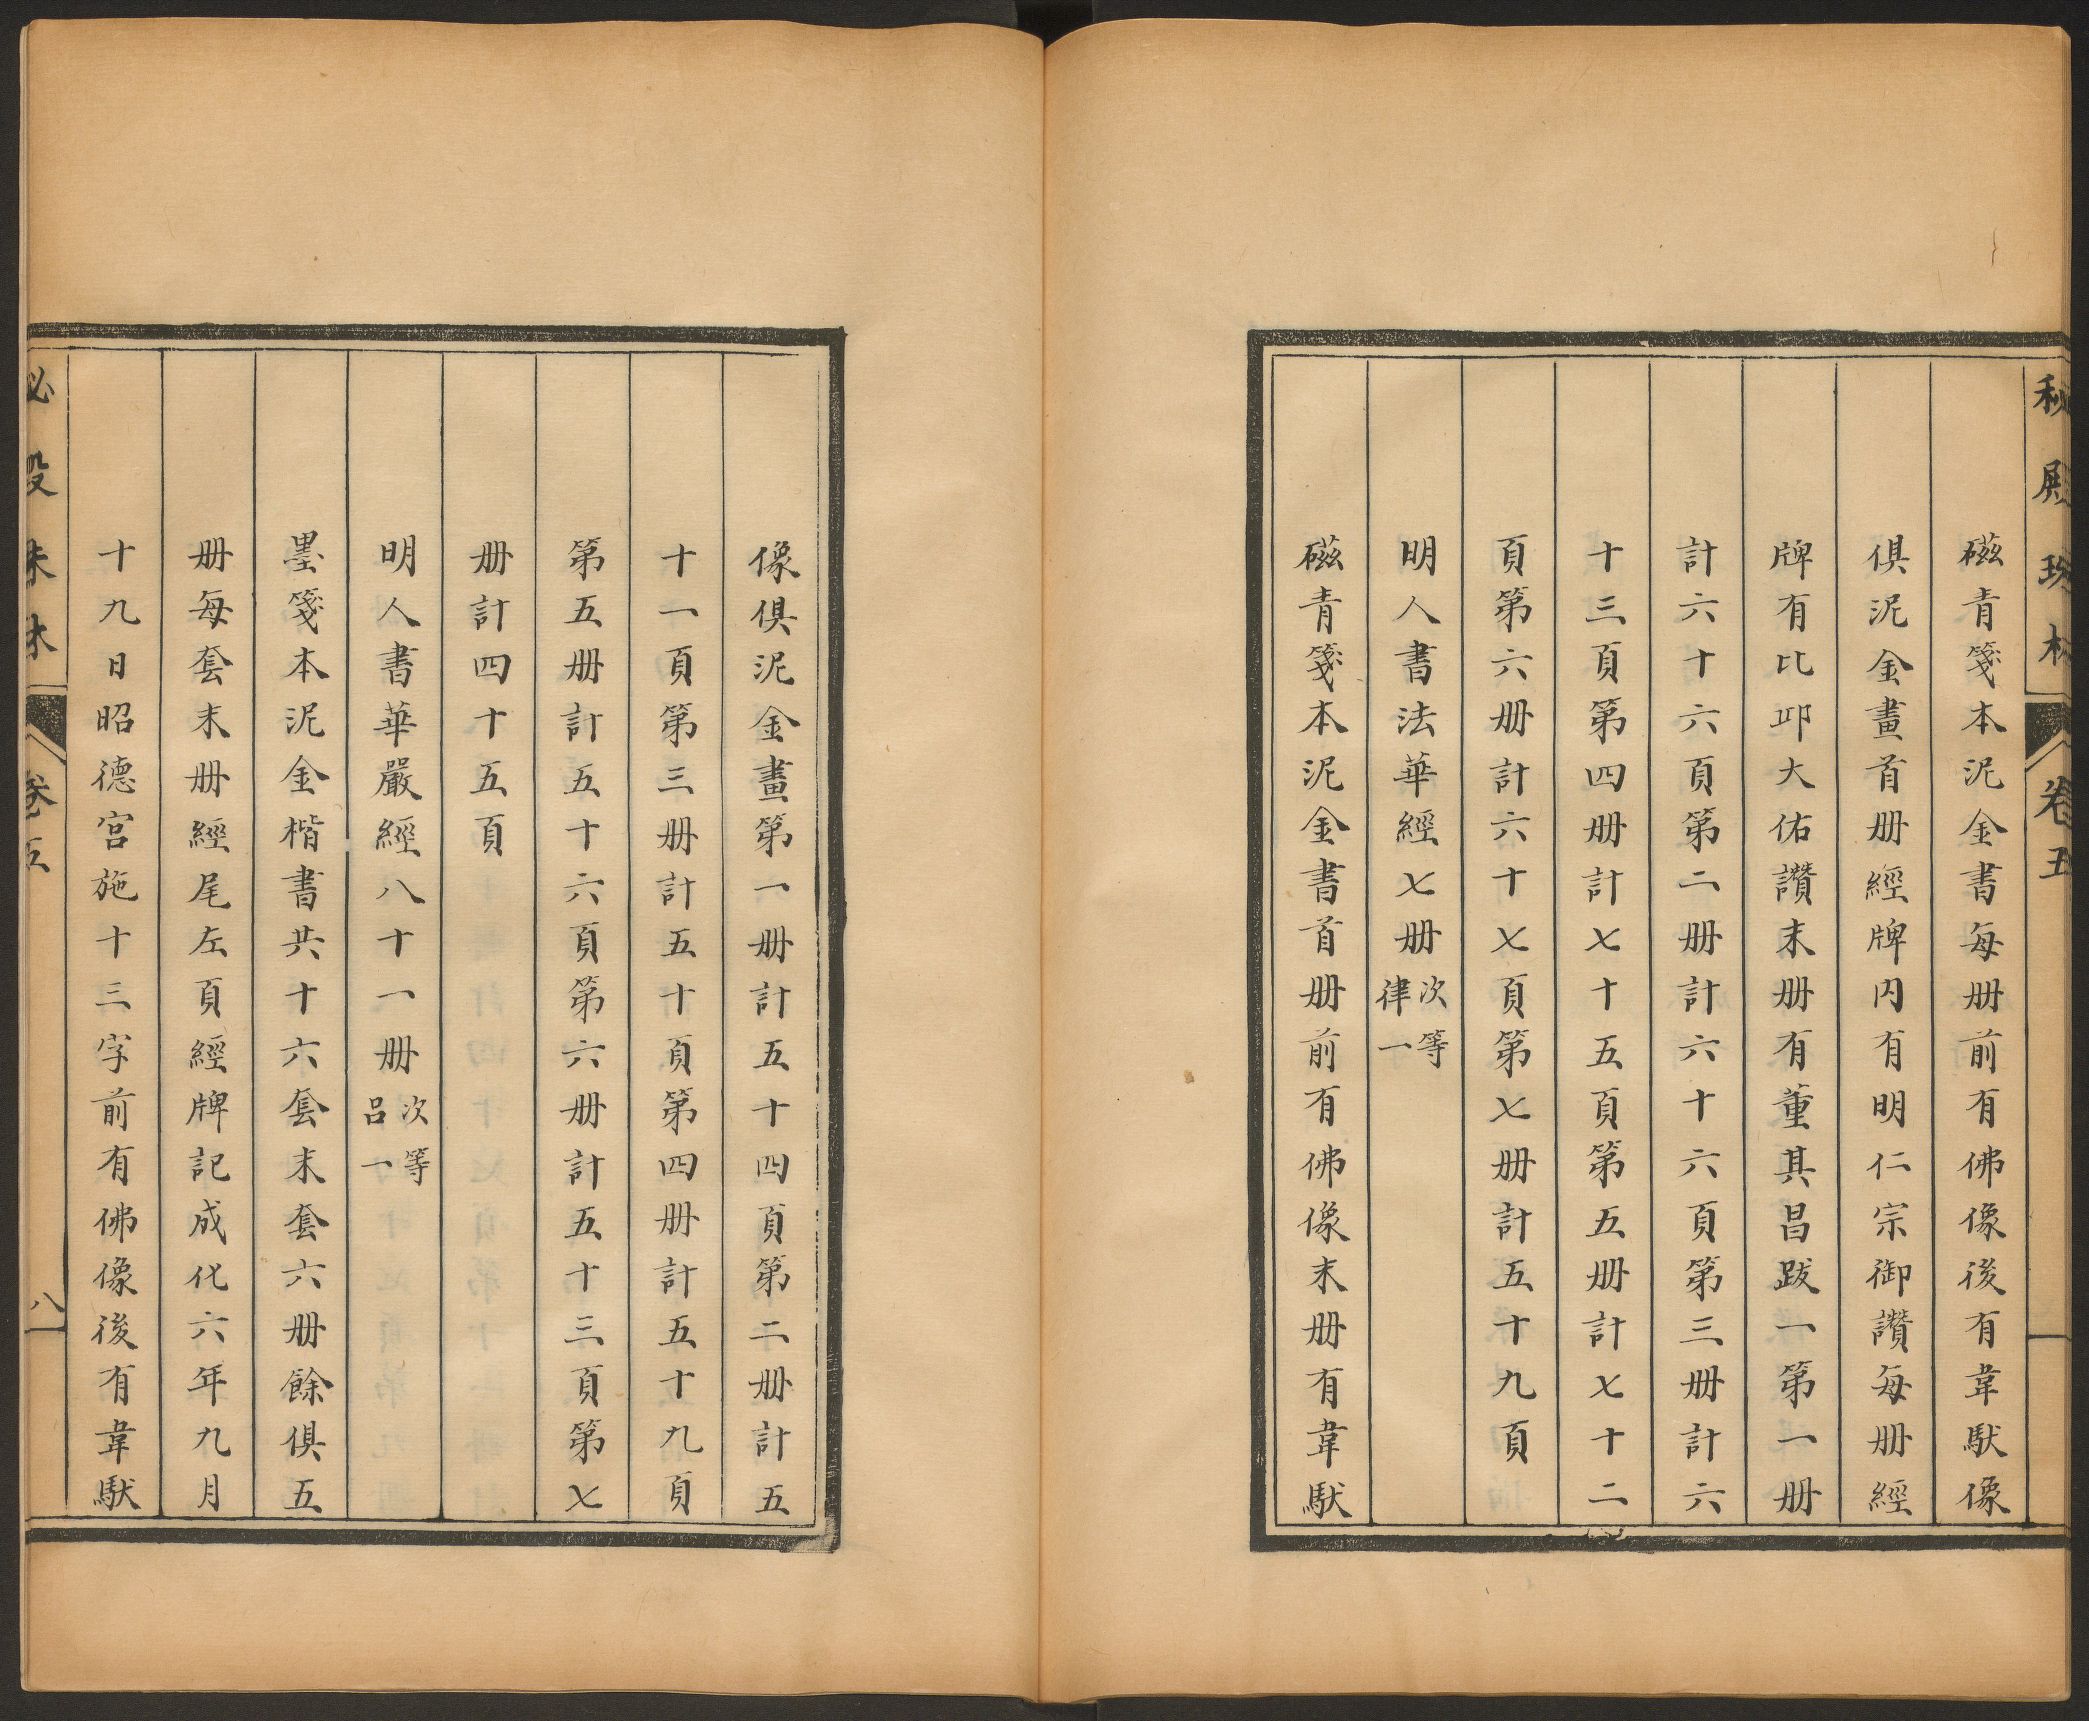 秘殿珠林 卷五
磁青箋本泥金書每册前有佛像後有韋馱像
俱泥金畫首册經牌内有明仁宗御讚每册經
牌有比邱大佑讚末册有董其昌跋一第一册
計六十六頁第二册計六十六頁第三册計六
十三頁第四册計七十五頁第五册計七十二
頁第六册計六十七頁第七册計五十九頁
明人書法華經七册次等律一
磁青箋本泥金書首册前有佛像末册有韋馱
像俱泥金畫第一册計五十四頁第二册計五
十一頁第三册計五十頁第四册計五十九頁
第五册計五十六頁第六册計五十三頁第七
册計四十五頁
明人書華嚴經八十一册次等呂一
墨箋本泥金楷書共十六套末套六册餘俱五
册每套末册經尾左頁經牌記成化六年九月
十九日昭德宫施十三字前有佛像後有韋馱
秘殿珠林 卷五 八